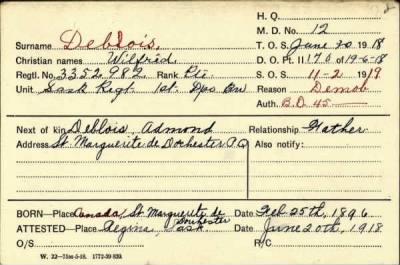 H. Q.
M. D. No. 12
Surname Deblois,
T. O. S. June 20 1918
Christian names Wilfrid,
D. O. Pt. II 170 of 19-6-18
Regtl. No. 3352982 Rank Pte
S. O. S. 11-2 1919
Unit Sask Regt 1st. Dps Bn
Reason Demob
Auth. B.D 45
Next of kin Deblois, Admond
Relationship Father
Address St. Marguerite de Dochester P.Q
Also notify:
BORN—Place Canada, St Marguerite de Dochester Date Feb 25th, 1896
ATTESTED—Place Regina, Sask Date June 20th, 1918
O/S R/C